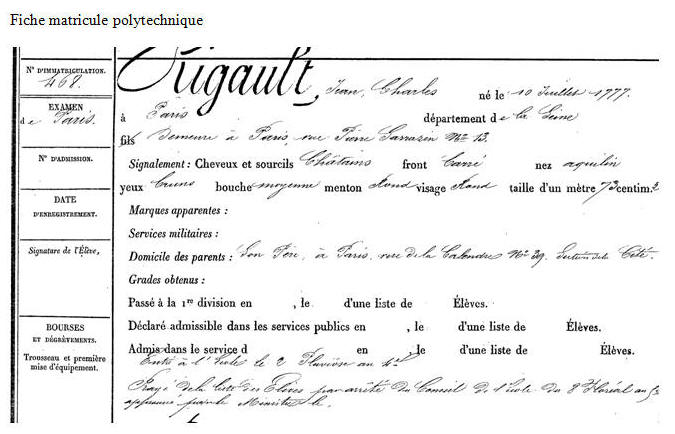 Fiche matricule polytechnique
N° D'IMMATRICULATION.
468.
EXAMEN
de Paris.
N° D'ADMISSION.
DATE
D'ENREGISTREMENT.
Signature de l'Élève,
BOURSES
ET DÉGRÈVEMENTS.
Trousseau et première
mise d'équipement.
Rigault, Jean, Charles né le 10 Juillet 1777.
à Paris département de la Seine
fils Demeure à Paris, rue Pierre Sarrazin N° 13.
Signalement : Cheveux et sourcils Châtains front Carré nez aquilin
yeux bruns bouche moyenne menton Rond visage Rond taille d'un mètre 73 centim.s
Marques apparentes :
Services militaires :
Domicile des parents : Son Père, à Paris, rue de la Calandre N° 39. Section de la Cité.
Grades obtenus :
Passé à la 1re division en , le d'une liste de Élèves.
Déclaré admissible dans les services publics en , le d'une liste de Élèves.
Admis dans le service d en , le d'une liste de Élèves.
Entré à l'École le 2 Pluviôse an 4
Rayé de la liste des Élèves par arrêté du Conseil de l'École du 8 Floréal an 5
approuvé par le Ministre le